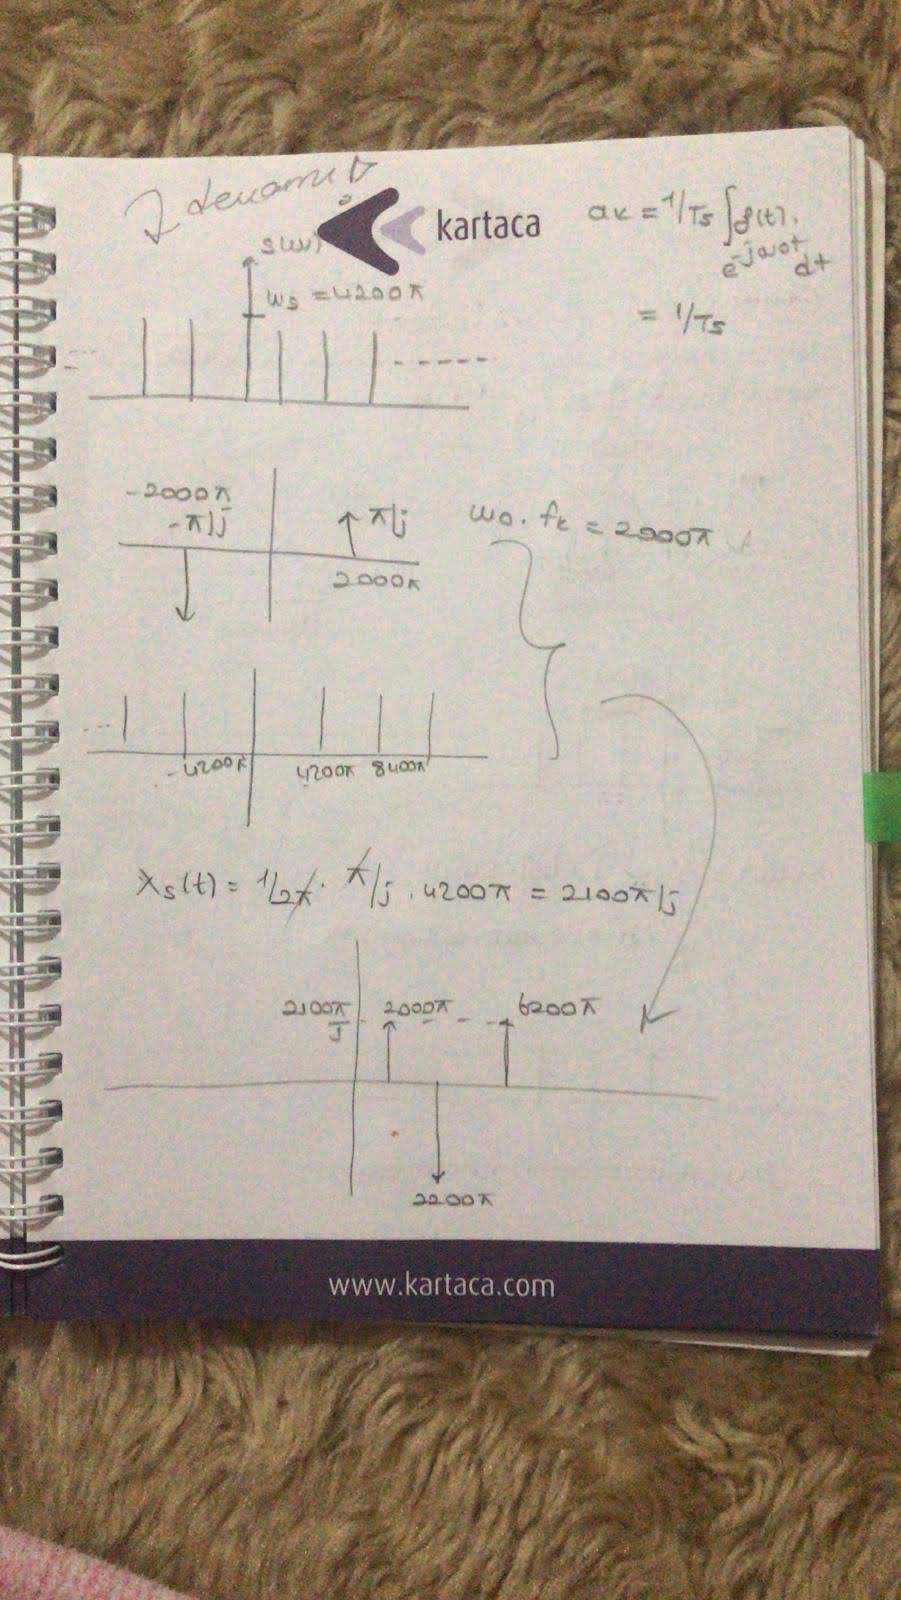 devamı
kartaca
ak = 1/Ts ∫ f(t).
e^-jωot dt
= 1/Ts
S(w)
Ws = 4200π
-2000π
-π/j
π/j
2000π
wo. fk = 2000π
-4200π
4200π
8400π
Xs(t) = 1/2π . π/j . 4200π = 2100π/j
2100π
J
2000π
6200π
2200π
www.kartaca.com